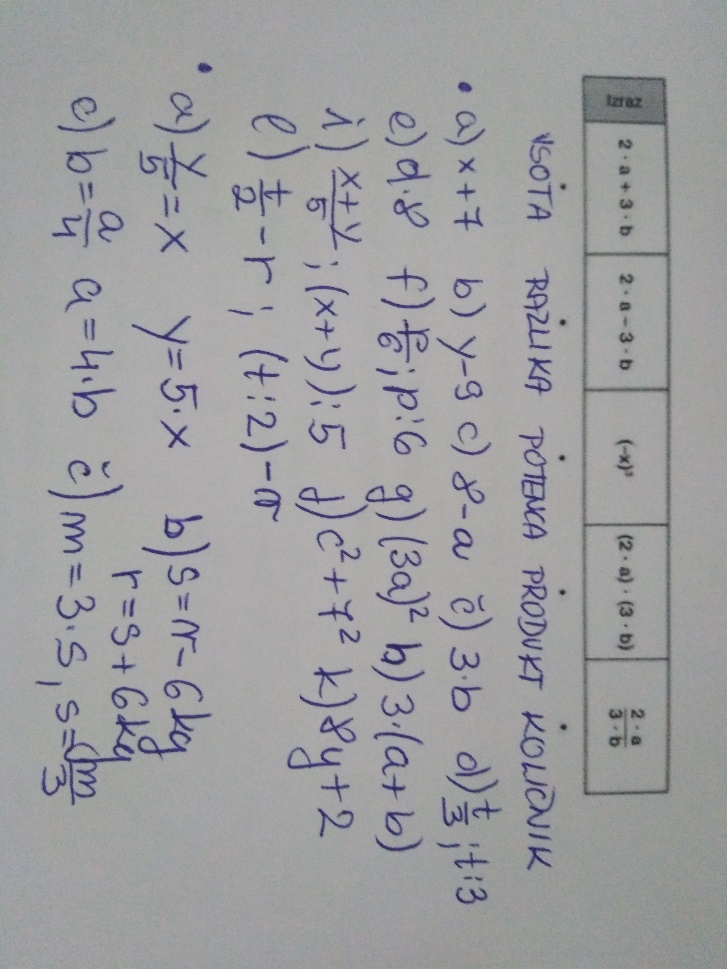 Izraz 2 · a + 3 · b 2 · a – 3 · b (–x)³ (2 · a) · (3 · b) 2 · a / 3 · b
VSOTA RAZLIKA POTENCA PRODUKT KOLIČNIK
• a) x + 7 b) y - 9 c) 8 - a č) 3·b d) t/3 ; t:3
e) d·8 f) p/6 ; p:6 g) (3a)² h) 3·(a+b)
i) x+y/5 ; (x+y):5 j) c² + 7² k) 8y + 2
l) t/2 - r ; (t:2) - r
• a) y/5 = x y = 5·x b) s = r - 6kg
r = s + 6kg
c) b = a/4 a = 4·b č) m = 3·s, s = m/3